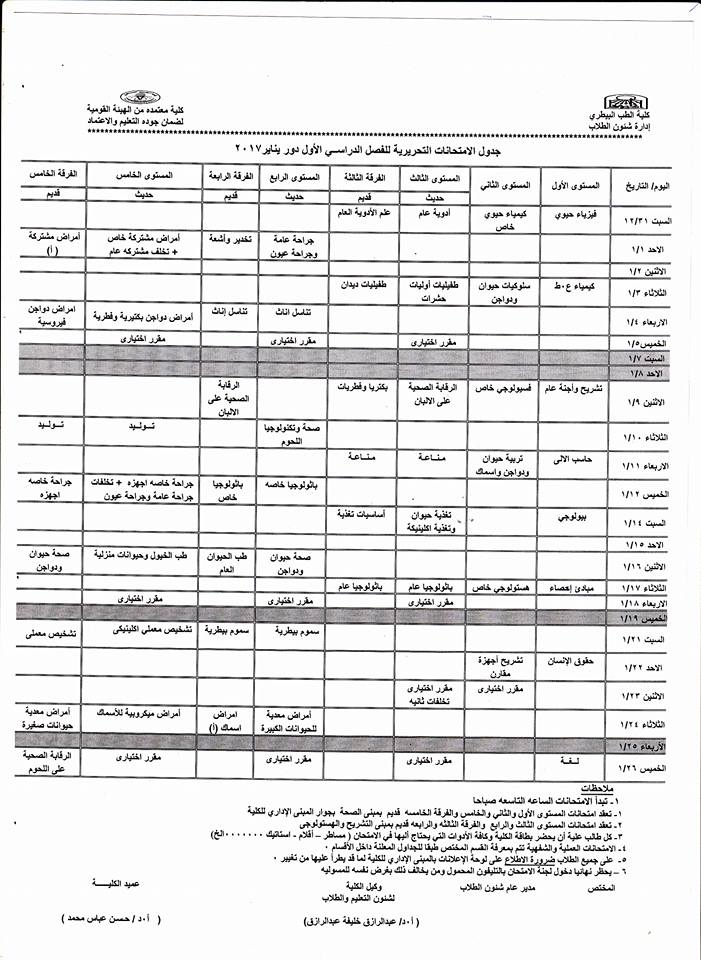 كلية الطب البيطري
إدارة شئون الطلاب
كلية معتمده من الهيئة القومية
لضمان جوده التعليم والاعتماد
جدول الامتحانات التحريرية للفصل الدراسي الأول دور يناير ٢٠١٧
اليوم/ التاريخ المستوى الأول المستوى الثاني المستوى الثالث الفرقة الثالثة المستوى الرابع الفرقة الرابعة المستوى الخامس الفرقة الخامس
حديث قديم حديث قديم حديث قديم
السبت ١٢/٣١ فيزياء حيوي كيمياء حيوي خاص أدوية عام علم الأدوية العام
الاحد ١/١ جراحة عامة وجراحة عيون تخدير وأشعة أمراض مشتركة خاص + تخلف مشتركه عام أمراض مشتركة (أ)
الاثنين ١/٢
الثلاثاء ١/٣ كيمياء ع٠ط سلوكيات حيوان ودواجن طفيليات أوليات حشرات طفيليات ديدان
الاربعاء ١/٤ تناسل اناث تناسل إناث أمراض دواجن بكتيرية وفطرية امراض دواجن فيروسية
الخميس١/٥ مقرر اختيارى مقرر اختيارى مقرر اختيارى
السبت ١/٧
الاحد ١/٨
الاثنين ١/٩ تشريح وأجنة عام فسيولوجي خاص الرقابة الصحية على الالبان بكتريا وفطريات الرقابة الصحية على الالبان
الثلاثاء ١/١٠ صحة وتكنولوجيا اللحوم تـولـيد تـولـيد
الاربعاء ١/١١ حاسب الالى تربية حيوان ودواجن واسماك منـاعـة منـاعـة
الخميس ١/١٢ باثولوجيا خاصه باثولوجيا خاص جراحة خاصه اجهزه + تخلفات جراحة عامة وجراحة عيون جراحة خاصه اجهزه
السبت ١/١٤ بيولوجي تغذية حيوان وتغذية اكلينيكة أساسيات تغذية
الاحد ١/١٥
الاثنين ١/١٦ صحة حيوان ودواجن طب الحيوان العام طب الخيول وحيوانات منزلية صحة حيوان ودواجن
الثلاثاء ١/١٧ مبادئ إحصاء هستولوجي خاص باثولوجيا عام باثولوجيا عام
الاربعاء ١/١٨ مقرر اختيارى مقرر اختيارى مقرر اختيارى
الخميس ١/١٩
السبت ١/٢١ سموم بيطرية سموم بيطرية تشخيص معملي اكلينيكى تشخيص معملى
الاحد ١/٢٢ حقوق الإنسان تشريح أجهزة مقارن
الاثنين ١/٢٣ مقرر اختيارى مقرر اختيارى تخلفات ثانيه
الثلاثاء ١/٢٤ أمراض معدية للحيوانات الكبيرة امراض اسماك (أ) أمراض ميكروبية للأسماك أمراض معدية حيوانات صغيرة
الأربعاء ١/٢٥
الخميس ١/٢٦ لـغـة مقرر اختيارى مقرر اختيارى مقرر اختيارى الرقابة الصحية على اللحوم
ملاحظات
١- تبدأ الامتحانات الساعه التاسعه صباحا
٢- تعقد امتحانات المستوى الأول والثاني والخامس والفرقة الخامسه قديم بمبنى الصحة بجوار المبنى الإداري للكلية
٢- تعقد امتحانات المستوى الثالث والرابع والفرقة الثالثه والرابعه قديم بمبنى التشريح والهستولوجى
٣- كل طالب علية أن يحضر بطاقة الكلية وكافة الأدوات التي يحتاج أليها في الامتحان ( مساطر – أقلام - استاتيك ٠٠٠٠٠٠٠الخ)
٤- الامتحانات العملية والشفهية تتم بمعرفة القسم المختص طبقا للجداول المعلنة داخل الأقسام ٠
٥- على جميع الطلاب ضرورة الاطلاع على لوحة الإعلانات بالمبنى الإداري للكلية لما قد يطرأ عليها من تغيير ٠
٦ – يحظر نهائيا دخول لجنة الامتحان بالتليفون المحمول ومن يخالف ذلك يعرض نفسه للمسوليه
المختص مدير عام شئون الطلاب وكيل الكلية عميد الكليـــة
لشئون التعليم والطلاب
( أ٠د/ عبدالرازق خليفة عبدالرازق) ( أ٠د/ حسن عباس محمد )